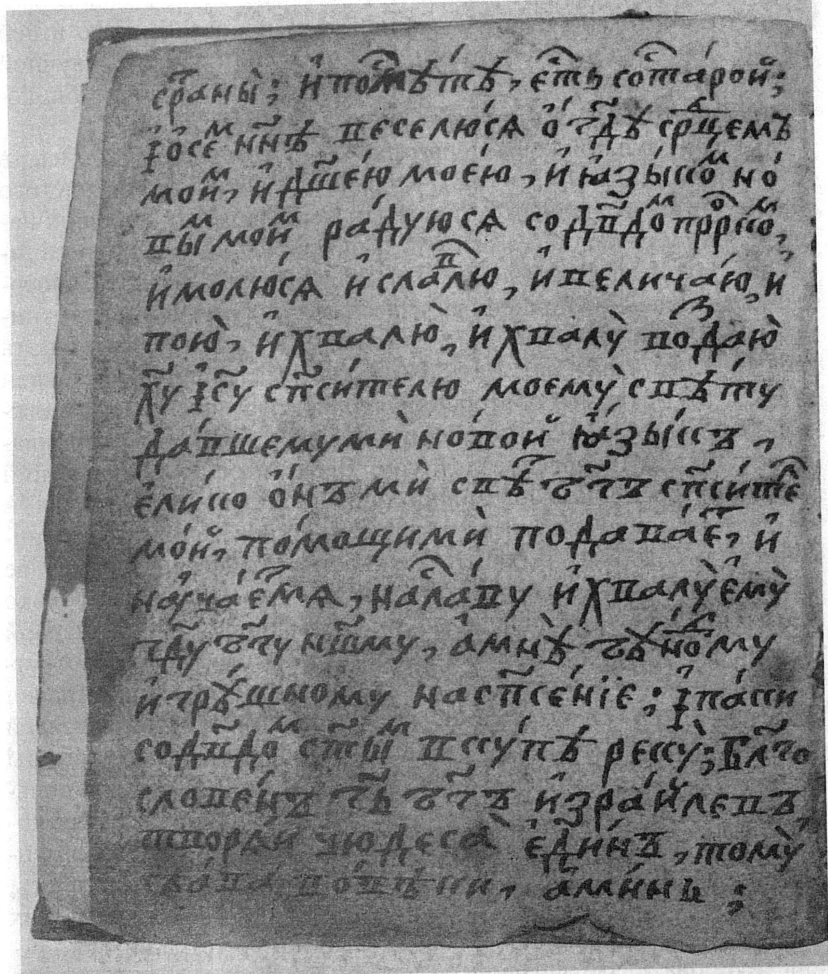 страны̀; и҆ помⷭ҇ѣтѣ, е҆́сть со ста́рой;
І҆ о҆ се́ⷨ нн҃ѣ веселю́сѧ о҆ гд҃ѣ срⷣцемъ
моиⷨ, и҆ дш҃е́ю мое́ю, и҆ ꙗ҆зы́коⷨ но́
выⷨ моиⷨ ра́дуюсѧ со дв҃доⷨ прⷪ҇ркоⷨ,
и҆ молю́сѧ и҆ славлю, и҆ велича́ю, и҆
пою̀, и҆ хвалю̀, и҆ хвалу̀ воⷥдаю̀
хр҃у і҆с҃у сп҃си́телю моемꙋ̀ свѣ́ту
да́вшему мѝ но́вой ꙗ҆зы́къ,
е҆ли́ко ѻ҆́нъ мѝ свѣⷮ бг҃ъ сп҃си́теⷧ
мо́й, по́мощи мѝ подава́еⷮ, и҆
научаеⷮ мѧ, на сла́ву и҆ хвалу̀ е҆мꙋ̀
гд҃у бг҃у нш҃му, а҆ мнѣ̀ бѣⷣно́му
и҆ грѣ́шному на сп҃се́нїе; І҆ па́ки
со дв҃доⷨ ст҃ыⷨ вкꙋ́пѣ рекꙋ̀; Бл҃го
слове́нъ гд҃ь бг҃ъ и҆зра́илевъ,
творѧ́й чюдеса̀ е҆ди́нъ, томꙋ̀
сла́ва во́вѣки, а҆ми́нь;